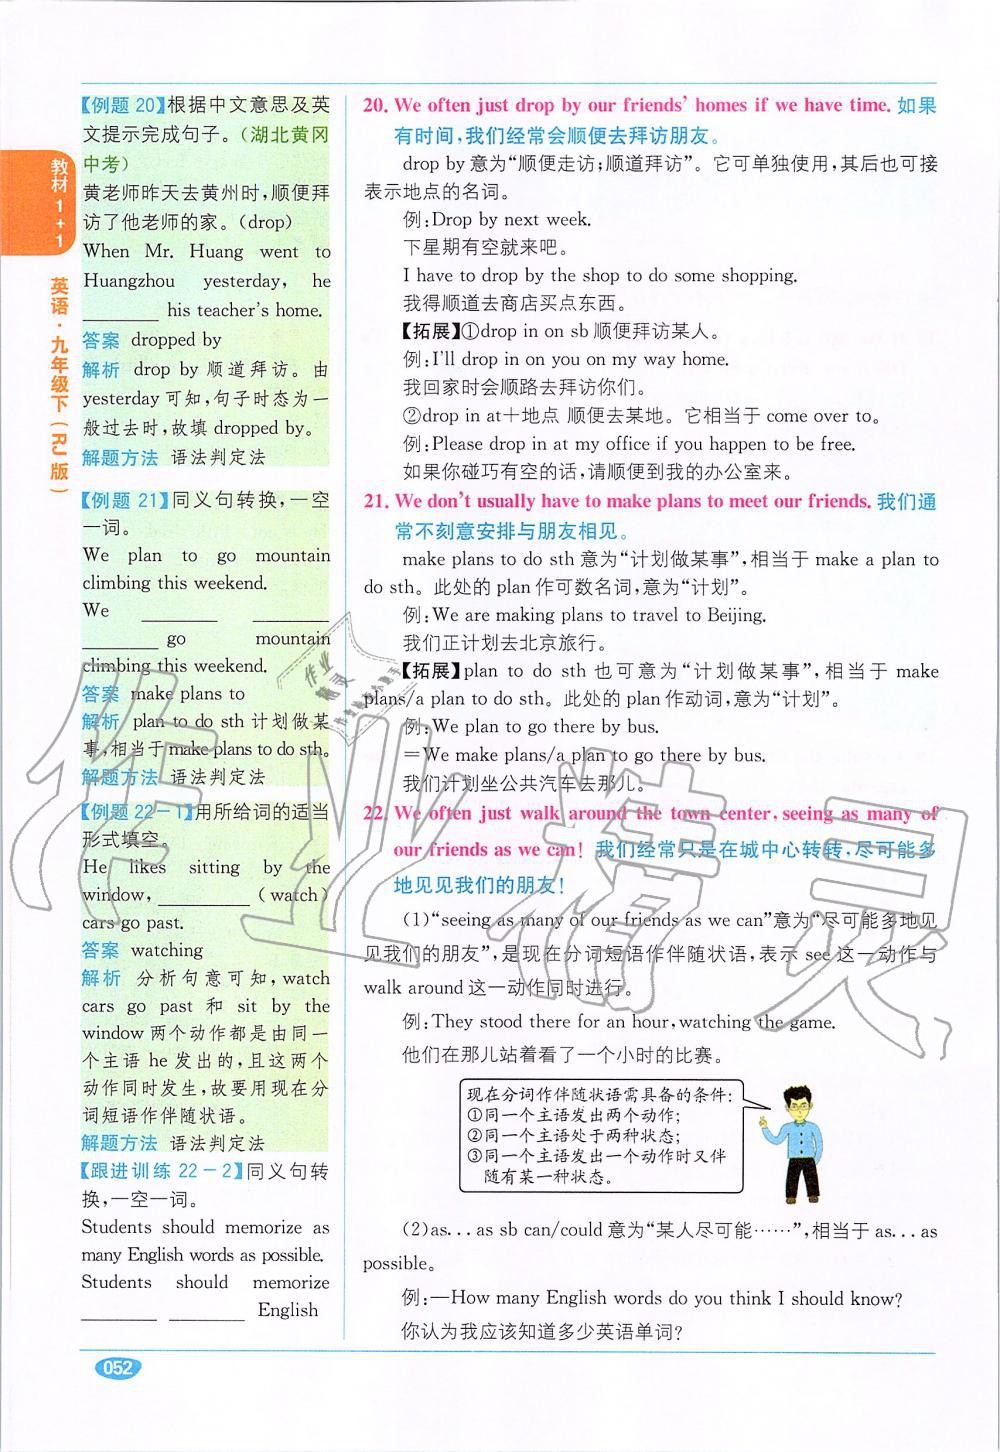 教材1+1
英语·九年级下(RJ版)
【例题20】根据中文意思及英
文提示完成句子。(湖北黄冈
中考)
黄老师昨天去黄州时,顺便拜
访了他老师的家。(drop)
When Mr. Huang went to
Huangzhou yesterday, he
________ his teacher's home.
答案 dropped by
解析 drop by 顺道拜访。由
yesterday可知,句子时态为一
般过去时,故填dropped by。
解题方法 语法判定法
【例题21】同义句转换,一空
一词。
We plan to go mountain
climbing this weekend.
We ________ ________
________ go mountain
climbing this weekend.
答案 make plans to
解析 plan to do sth 计划做某
事,相当于make plans to do sth。
解题方法 语法判定法
【例题22-1】用所给词的适当
形式填空。
He likes sitting by the
window, __________ (watch)
cars go past.
答案 watching
解析 分析句意可知,watch
cars go past 和 sit by the
window两个动作都是由同一
个主语he发出的,且这两个
动作同时发生,故要用现在分
词短语作伴随状语。
解题方法 语法判定法
【跟进训练22-2】同义句转
换,一空一词。
Students should memorize as
many English words as possible.
Students should memorize
________ ________ English
20. We often just drop by our friends' homes if we have time. 如果
有时间,我们经常会顺便去拜访朋友。
drop by意为“顺便走访;顺道拜访”。它可单独使用,其后也可接
表示地点的名词。
例:Drop by next week.
下星期有空就来吧。
I have to drop by the shop to do some shopping.
我得顺道去商店买点东西。
【拓展】①drop in on sb顺便拜访某人。
例:I'll drop in on you on my way home.
我回家时会顺路去拜访你们。
②drop in at+地点 顺便去某地。它相当于come over to。
例:Please drop in at my office if you happen to be free.
如果你碰巧有空的话,请顺便到我的办公室来。
21. We don't usually have to make plans to meet our friends. 我们通
常不刻意安排与朋友相见。
make plans to do sth意为“计划做某事”,相当于make a plan to
do sth。此处的plan作可数名词,意为“计划”。
例:We are making plans to travel to Beijing.
我们正计划去北京旅行。
【拓展】plan to do sth也可意为“计划做某事”,相当于make
plans/a plan to do sth。此处的plan作动词,意为“计划”。
例:We plan to go there by bus.
=We make plans/a plan to go there by bus.
我们计划坐公共汽车去那儿。
22. We often just walk around the town center, seeing as many of
our friends as we can! 我们经常只是在城中心转转,尽可能多
地见见我们的朋友!
(1)“seeing as many of our friends as we can”意为“尽可能多地见
见我们的朋友”,是现在分词短语作伴随状语,表示see这一动作与
walk around这一动作同时进行。
例:They stood there for an hour, watching the game.
他们在那儿站着看了一个小时的比赛。
现在分词作伴随状语需具备的条件:
①同一个主语发出两个动作;
②同一个主语处于两种状态;
③同一个主语发出一个动作时又伴
随有某一种状态。
(2)as... as sb can/could意为“某人尽可能……”,相当于as... as
possible。
例:—How many English words do you think I should know?
你认为我应该知道多少英语单词?
052
作业精灵